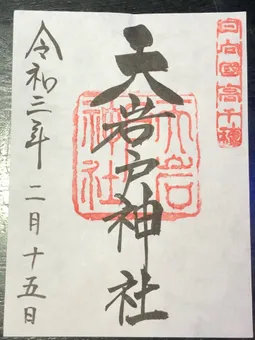 日向國高千穗
天岩戸神社
天岩
神社
令和三年二月十五日